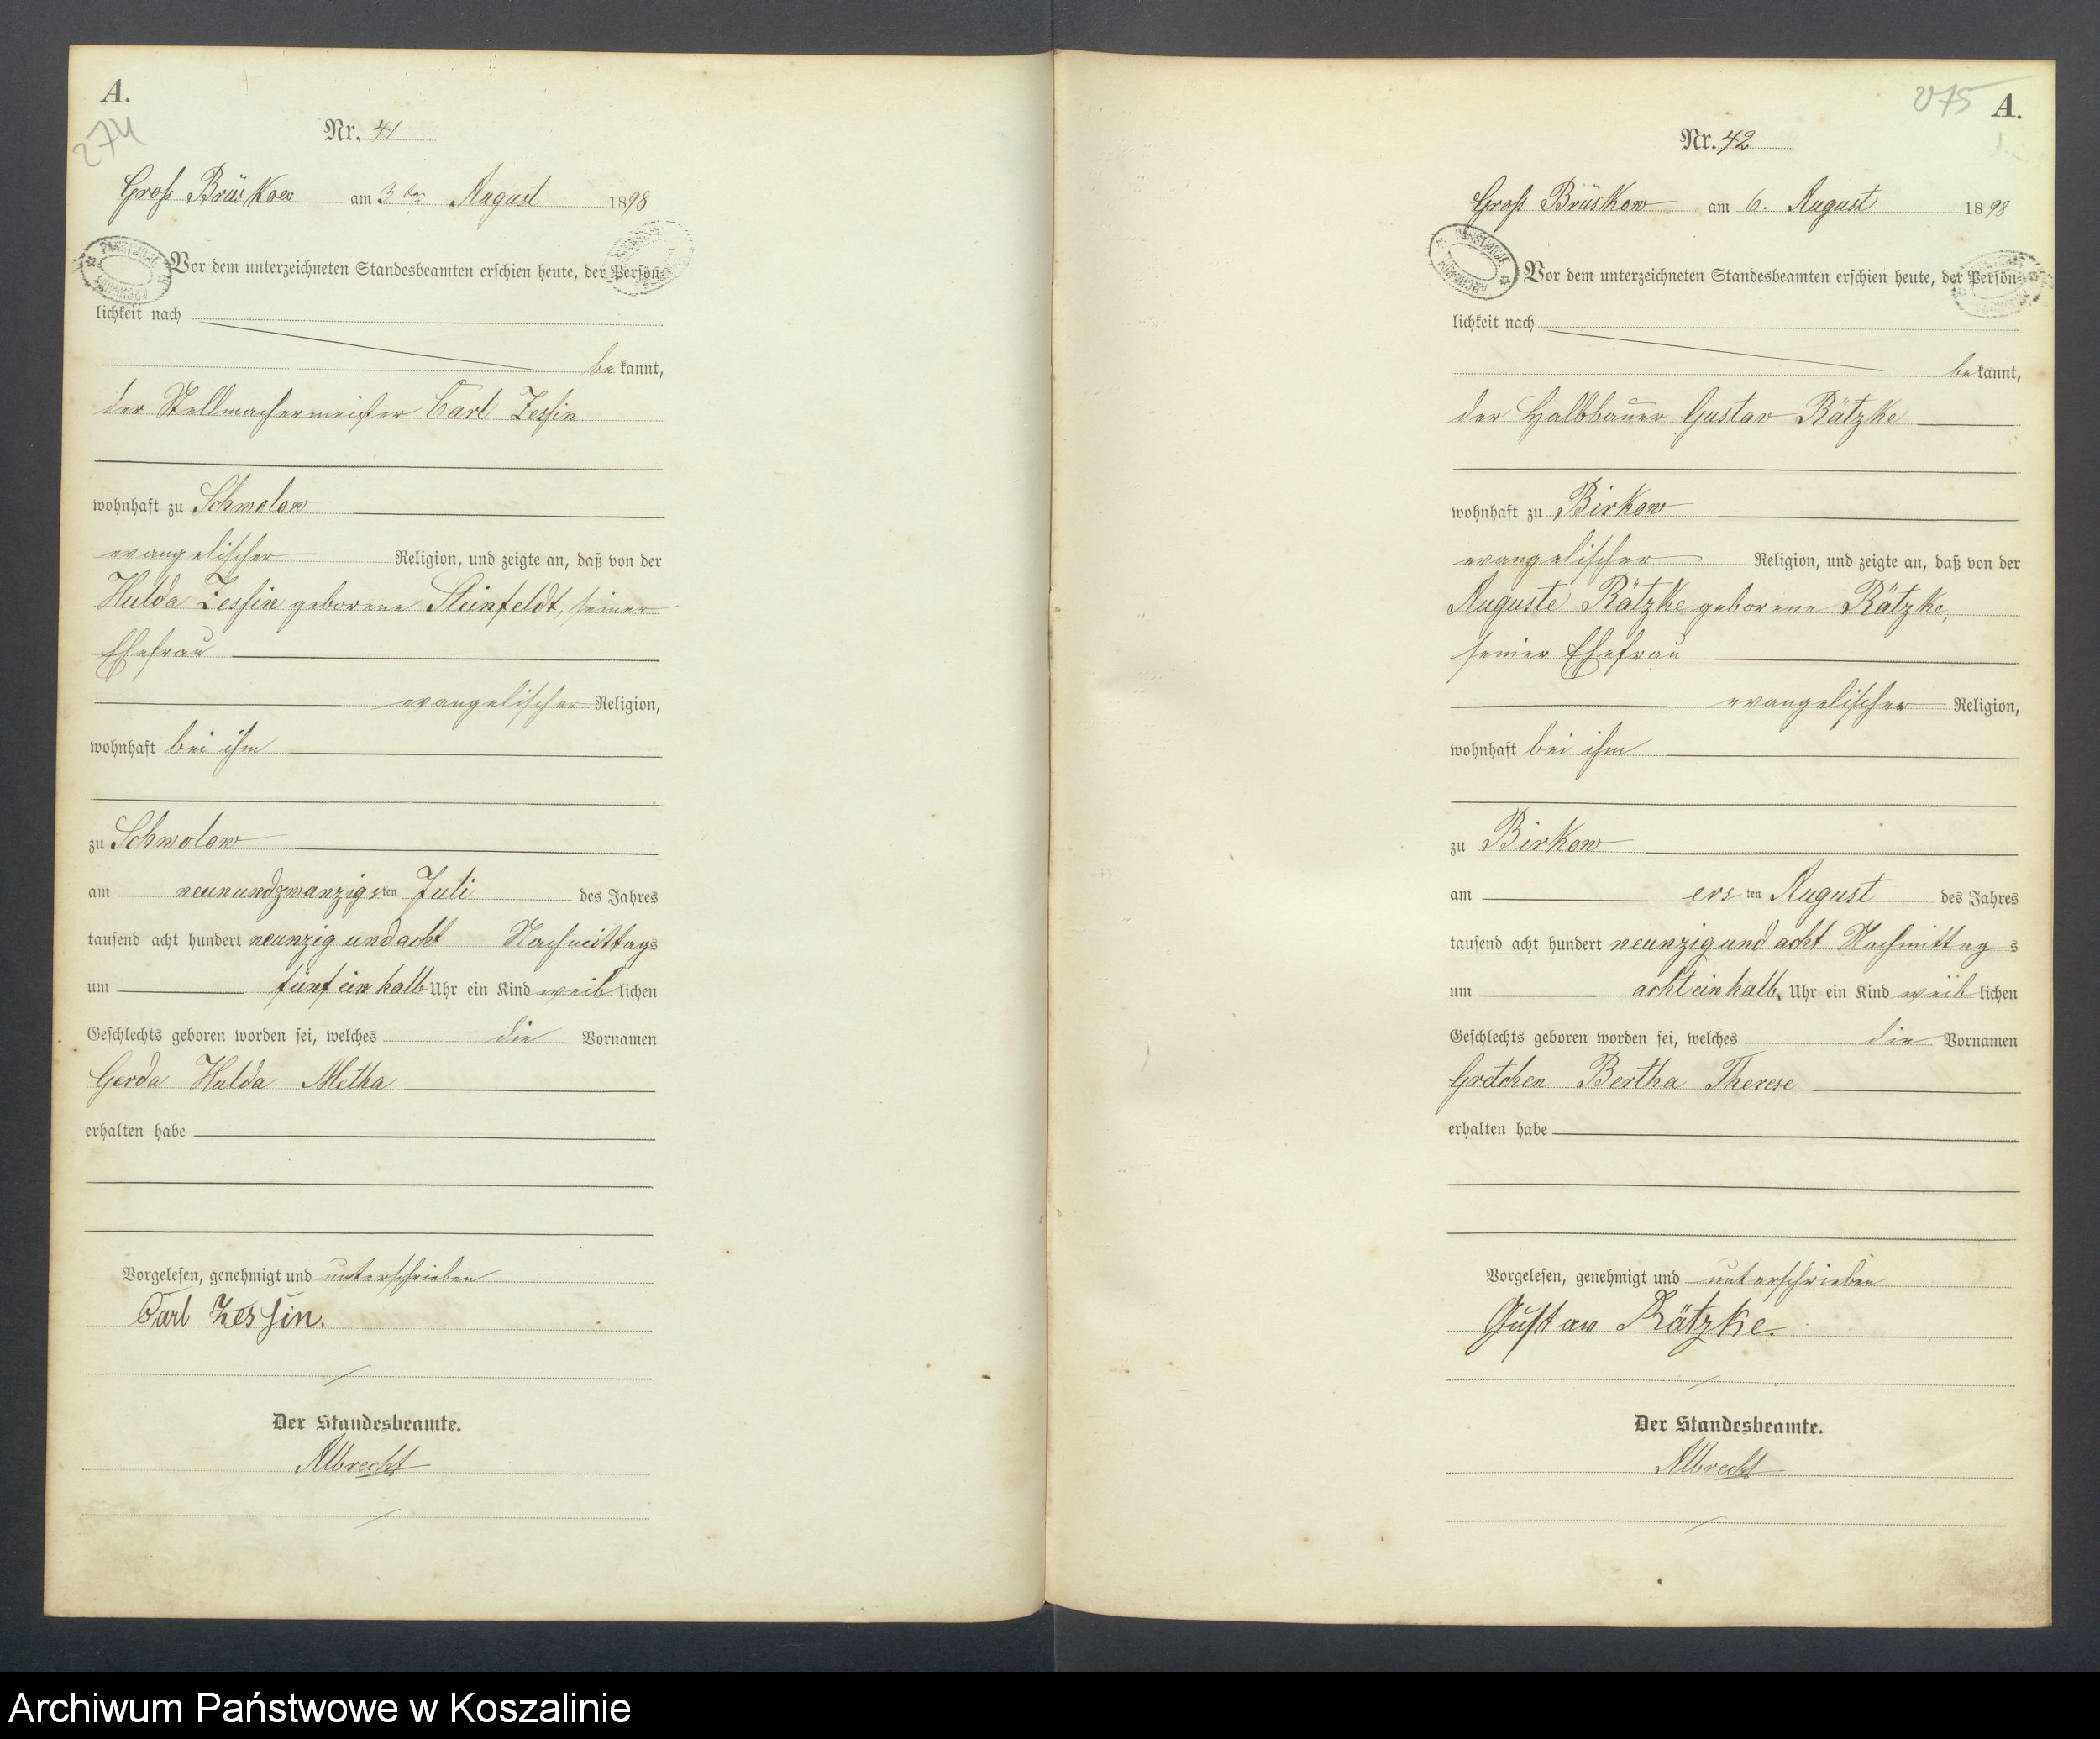 A.
274
Nr. 41
Groß Brüskow am 3ten August 1898
Vor dem unterzeichneten Standesbeamten erschien heute, der Persön-
lichkeit nach
bekannt,
der Stellmachermeister Carl Zessin
wohnhaft zu Schwolow
evangelischer Religion, und zeigte an, daß von der
Hulda Zessin geborene Steinfeldt, seiner
Ehefrau
evangelischer Religion,
wohnhaft bei ihm
zu Schwolow
am neunundzwanzigsten Juli des Jahres
tausend acht hundert neunzig und acht Nachmittags
um fünf ein halb Uhr ein Kind weiblichen
Geschlechts geboren worden sei, welches die Vornamen
Gerda Hulda Metha
erhalten habe
Vorgelesen, genehmigt und unterschrieben
Carl Zessin.
Der Standesbeamte.
Albrecht
275
A.
Nr. 42
Groß Brüskow am 6. August 1898
Vor dem unterzeichneten Standesbeamten erschien heute, der Persön-
lichkeit nach
bekannt,
der Halbbauer Gustav Rätzke
wohnhaft zu Birkow
evangelischer Religion, und zeigte an, daß von der
Auguste Rätzke geborene Rätzke,
seiner Ehefrau
evangelischer Religion,
wohnhaft bei ihm
zu Birkow
am ersten August des Jahres
tausend acht hundert neunzig und acht Nachmittags
um acht ein halb Uhr ein Kind weiblichen
Geschlechts geboren worden sei, welches die Vornamen
Gretchen Bertha Therese
erhalten habe
Vorgelesen, genehmigt und unterschrieben
Gustav Rätzke.
Der Standesbeamte.
Albrecht
Archiwum Państwowe w Koszalinie